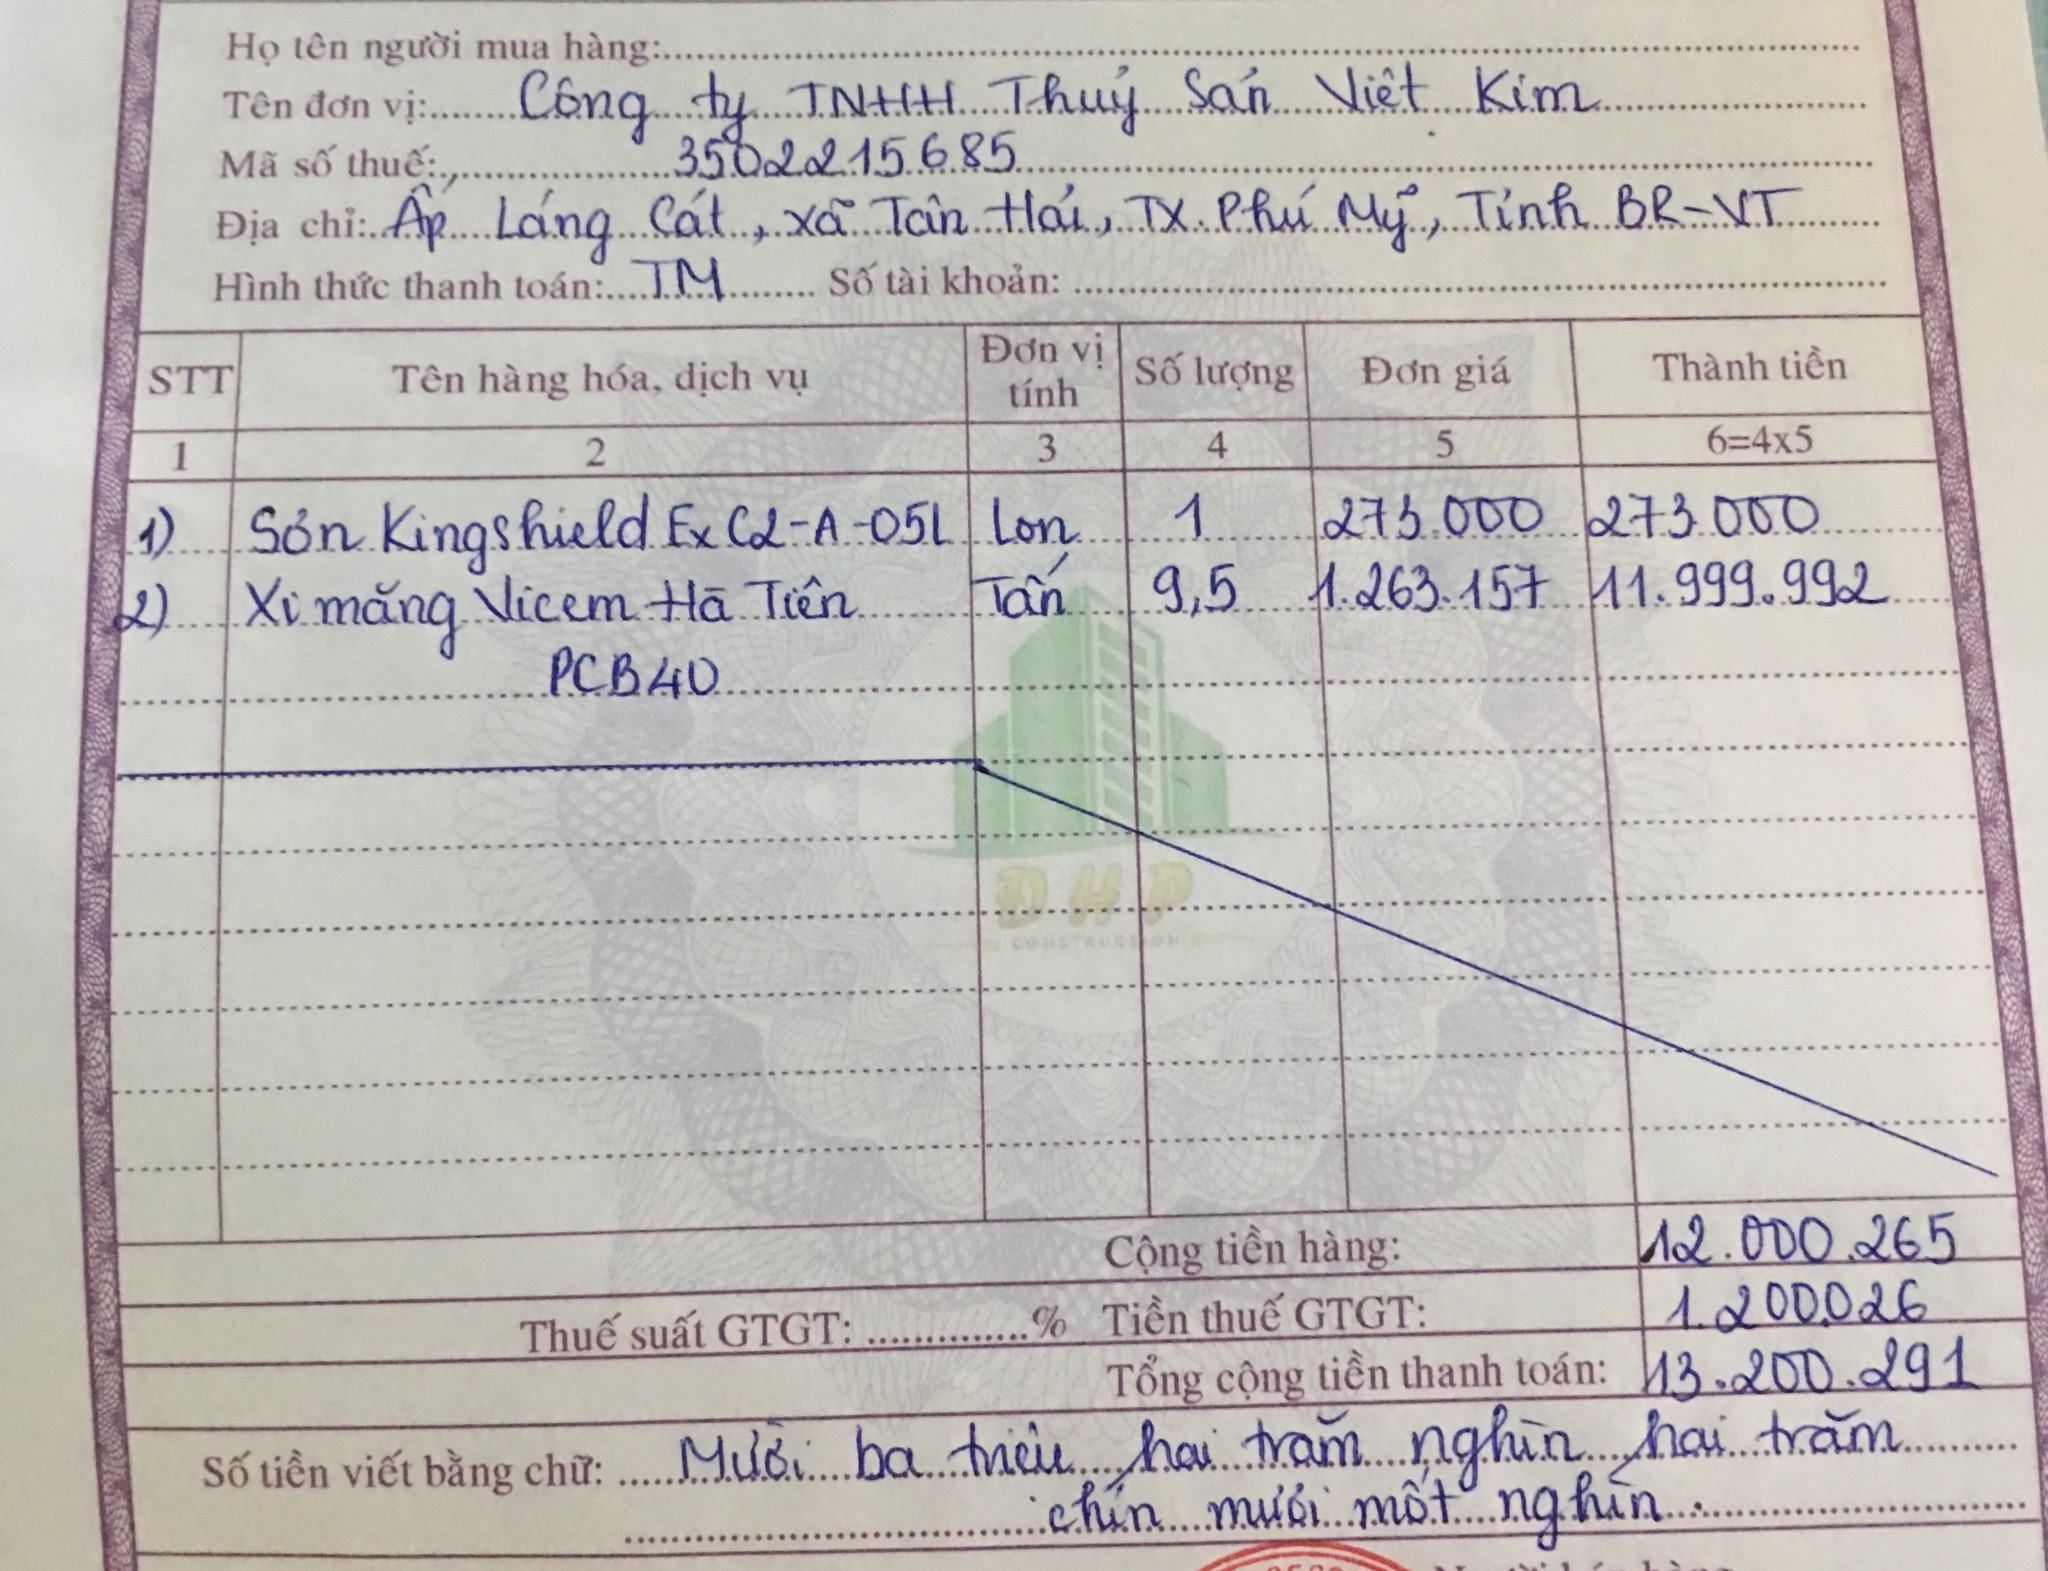 Họ tên người mua hàng:
Tên đơn vị: Công ty TNHH Thuỷ Sản Việt Kim
Mã số thuế: 3502215685
Địa chỉ: Ấp Láng Cát, xã Tân Hải, TX. Phú Mỹ, Tỉnh BR-VT
Hình thức thanh toán: TM Số tài khoản:
STT Tên hàng hóa, dịch vụ Đơn vị tính Số lượng Đơn giá Thành tiền
1 2 3 4 5 6=4x5
1) Sơn Kingshield Ex C2-A-05L Lon 1 273.000 273.000
2) Xi măng Vicem Hà Tiên Tấn 9,5 1.263.157 11.999.992
PCB40
ĐHP
CONSTRUCTION
Cộng tiền hàng: 12.000.265
Thuế suất GTGT: % Tiền thuế GTGT: 1.200.026
Tổng cộng tiền thanh toán: 13.200.291
Số tiền viết bằng chữ: Mười ba triệu hai trăm nghìn hai trăm
chín mươi mốt nghìn.